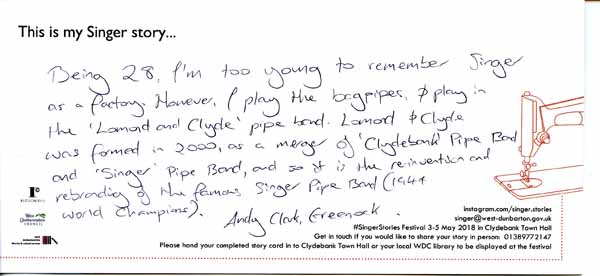 This is my Singer story...
Being 28, I'm too young to remember Singer
as a factory. However, I play the bagpipes, & play in
the 'Lomond and Clyde' pipe band. Lomond & Clyde
was formed in 2000, as a merger of 'Clydebank' Pipe Band
and 'Singer' Pipe Band, and so it is the reinvention and
rebranding of the famous Singer Pipe Band (1944
world Champions).
Andy Clark, Greenock.
West
Dunbartonshire
COUNCIL
instagram.com/singer.stories
singer@west-dunbarton.gov.uk
#SingerStories Festival 3-5 May 2018 in Clydebank Town Hall
Get in touch if you would like to share your story in person: 01389772147
Please hand your completed story card in to Clydebank Town Hall or your local WDC library to be displayed at the festival